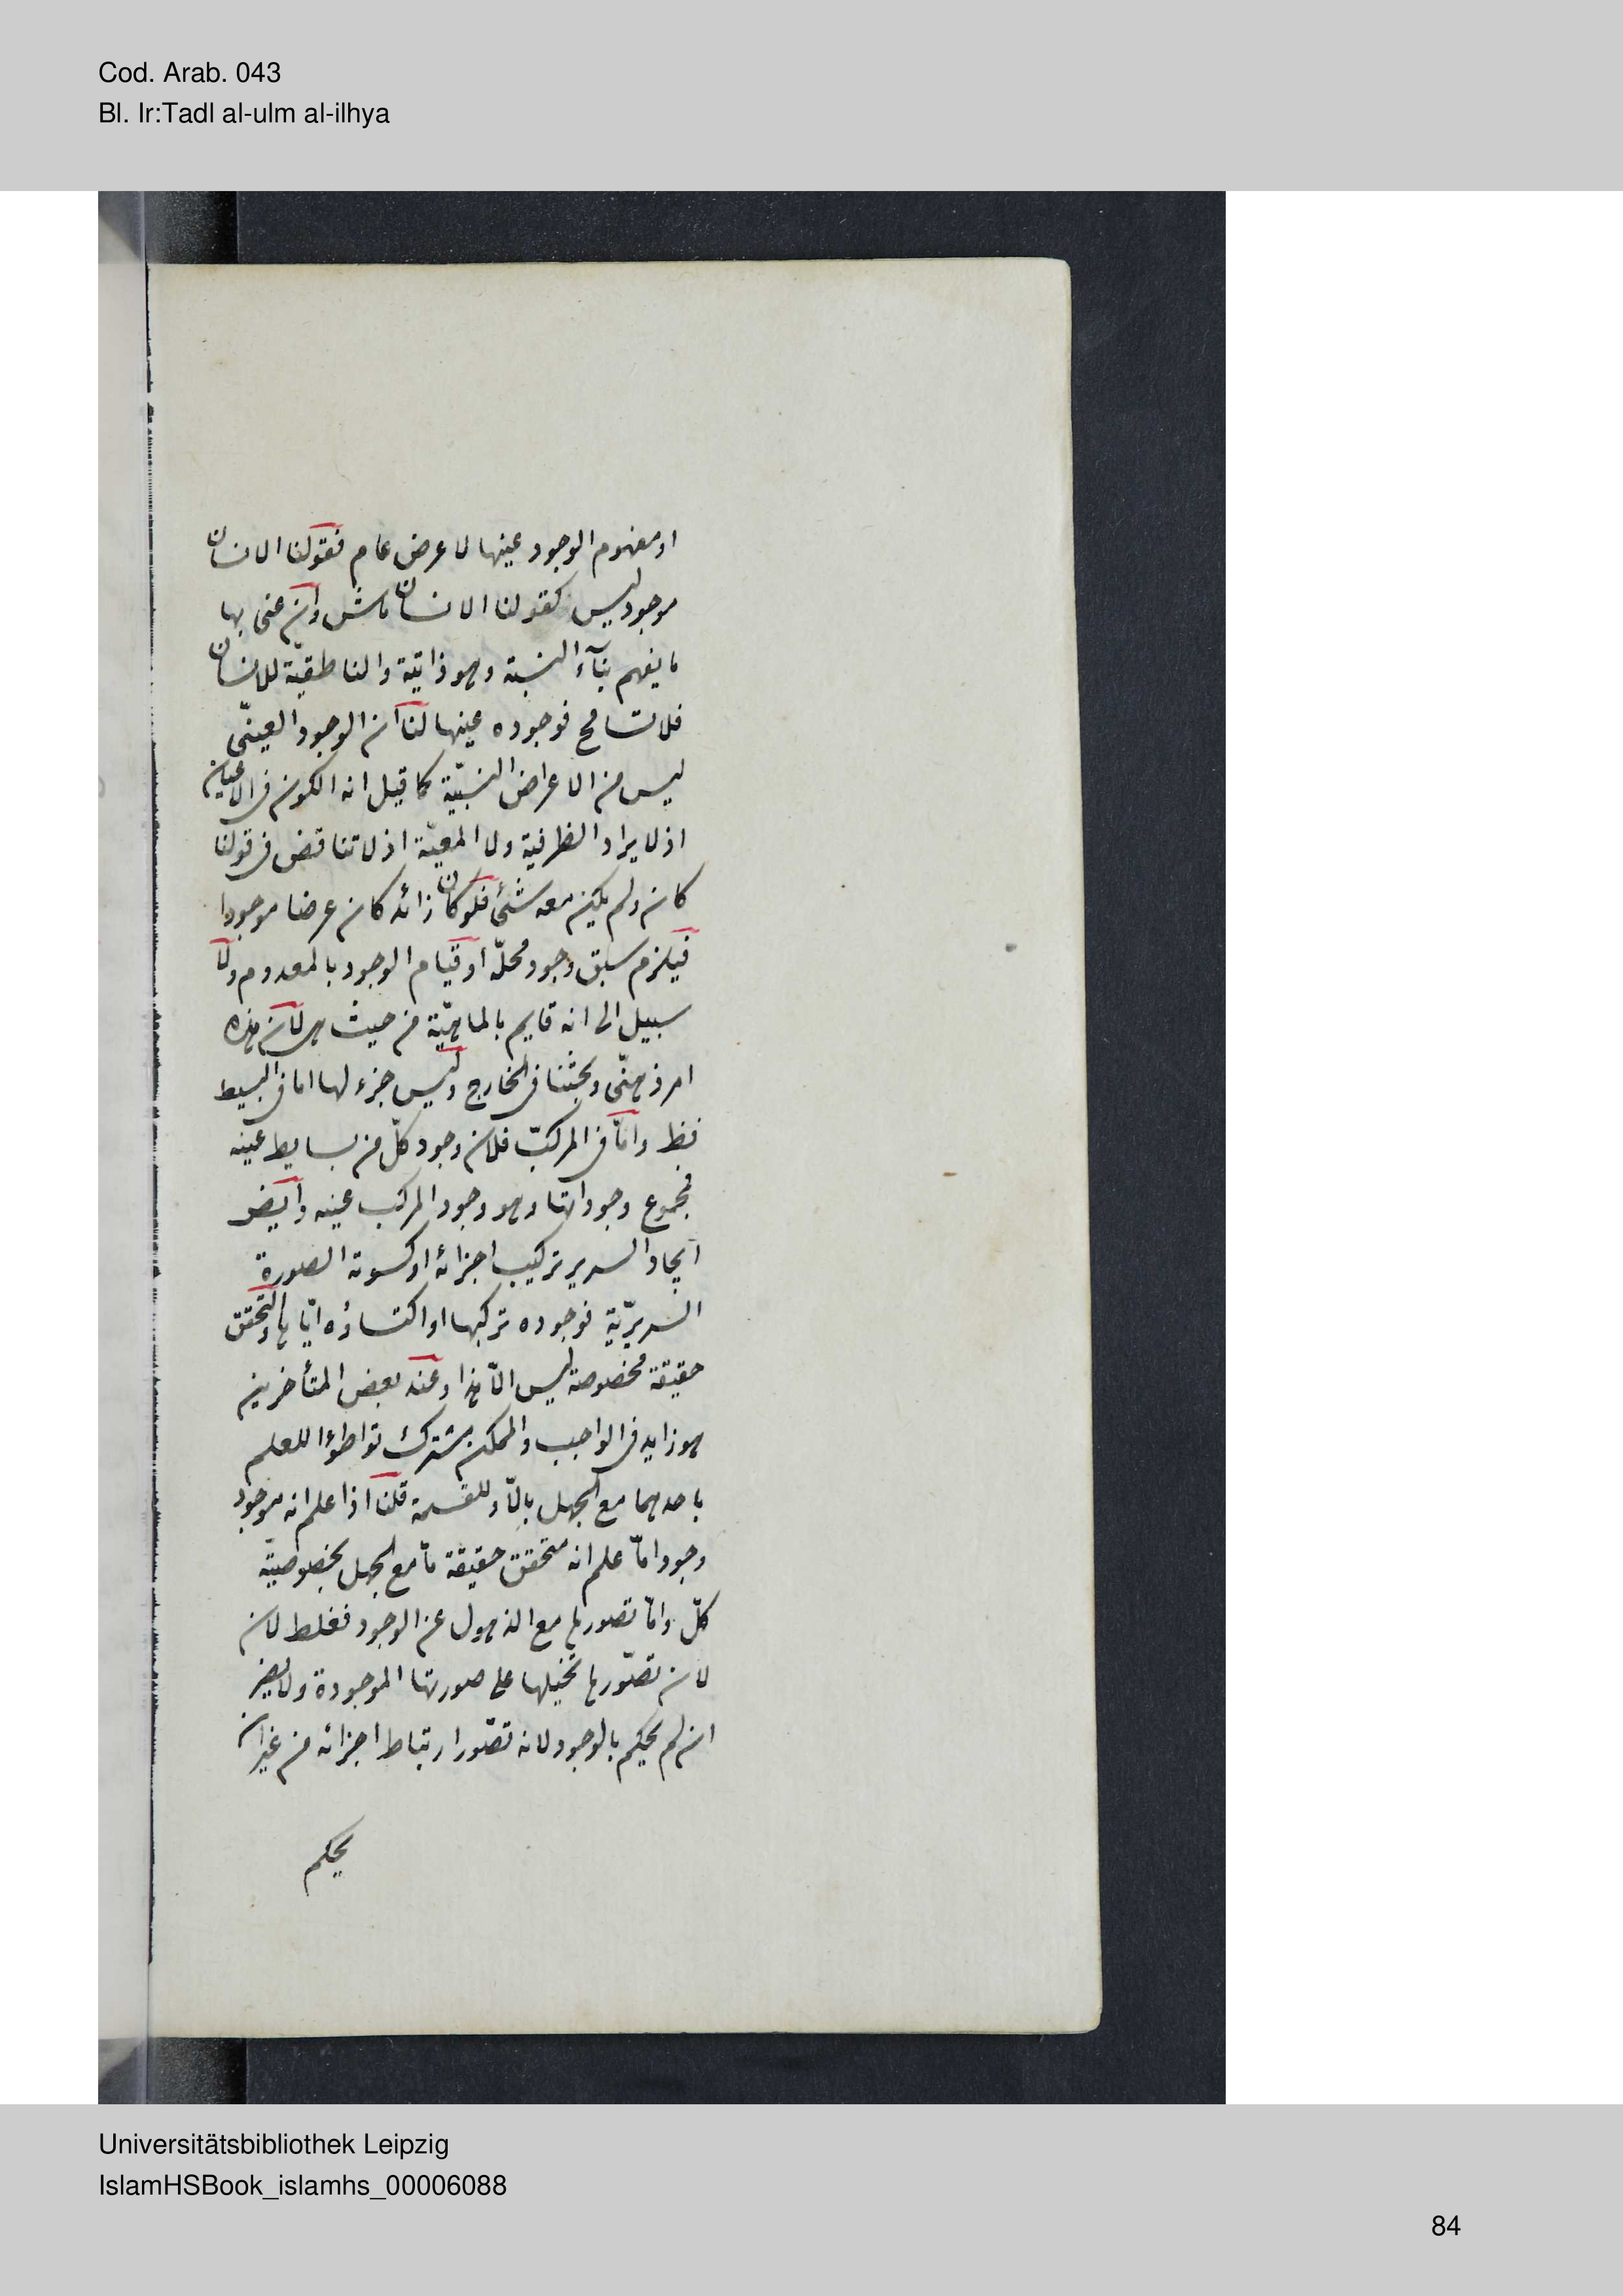 Cod. Arab. 043
Bl. Ir:Tadl al-ulm al-ilhya
او مفهوم الوجود عينها لا عرض عام فقولنا الانسان
موجود ليس كقولنا الانسان ماش وان عنى بها
ما يفهم بتاء النسبة وهو ذاتية والناطقية للانسان
فلا تسامح فوجوده عينها لنا ان الوجود العينى
ليس من الاعراض النسبية كما قيل انه الكون فى الاعيان
اذ لا يراد الظرفية ولا المعية اذ لا تناقض فى قولنا
كان ولم يكن معه شئ فلو كان زائد كان عرضا موجودا
فيلزم سبق وجود محله او قيام الوجود بالمعدوم ولا
سبيل الى انه قايم بالماهية من حيث هى لان هذه
امر ذهنى وبحثنا فى الخارج وليس جزء لها اما فى البسيط
فظ واما فى المركب فلان وجود كل من بسايط عينه
فمجموع وجوداتها وهو وجود المركب عينه وايض
ايجاد السرير تركيب اجزائه او كسوته الصورة
السريرية فوجوده تركبها او اكتساؤه اياها والتحقق
حقيقة مخصوصة ليس الا هذا وعند بعض المتأخرين
هو زايد فى الواجب والممكن مشترك تواطؤا للعلم
باحدهما مع الجهل بالا وللقسمة قلنا اذا علم انه موجود
وجودا ما علم انه متحقق حقيقة ما مع الجهل بخصوصية
كل واما تصورها مع الذهول عن الوجود فغلط لان
لان تصورها تخيلها على صورتها الموجودة ولا يضر
ان لم يحكم بالوجود لانه تصور ارتباط اجزائه من غير ان
يحكم
Universitätsbibliothek Leipzig
IslamHSBook_islamhs_00006088
84